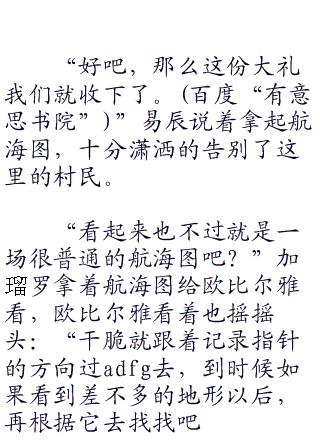 “好吧，那么这份大礼
我们就收下了。(百度“有意
思书院”)”易辰说着拿起航
海图，十分潇洒的告别了这
里的村民。
“看起来也不过就是一
场很普通的航海图吧？”加
瑠罗拿着航海图给欧比尔雅
看，欧比尔雅看着也摇摇
头：“干脆就跟着记录指针
的方向过adfg去，到时候如
果看到差不多的地形以后，
再根据它去找找吧